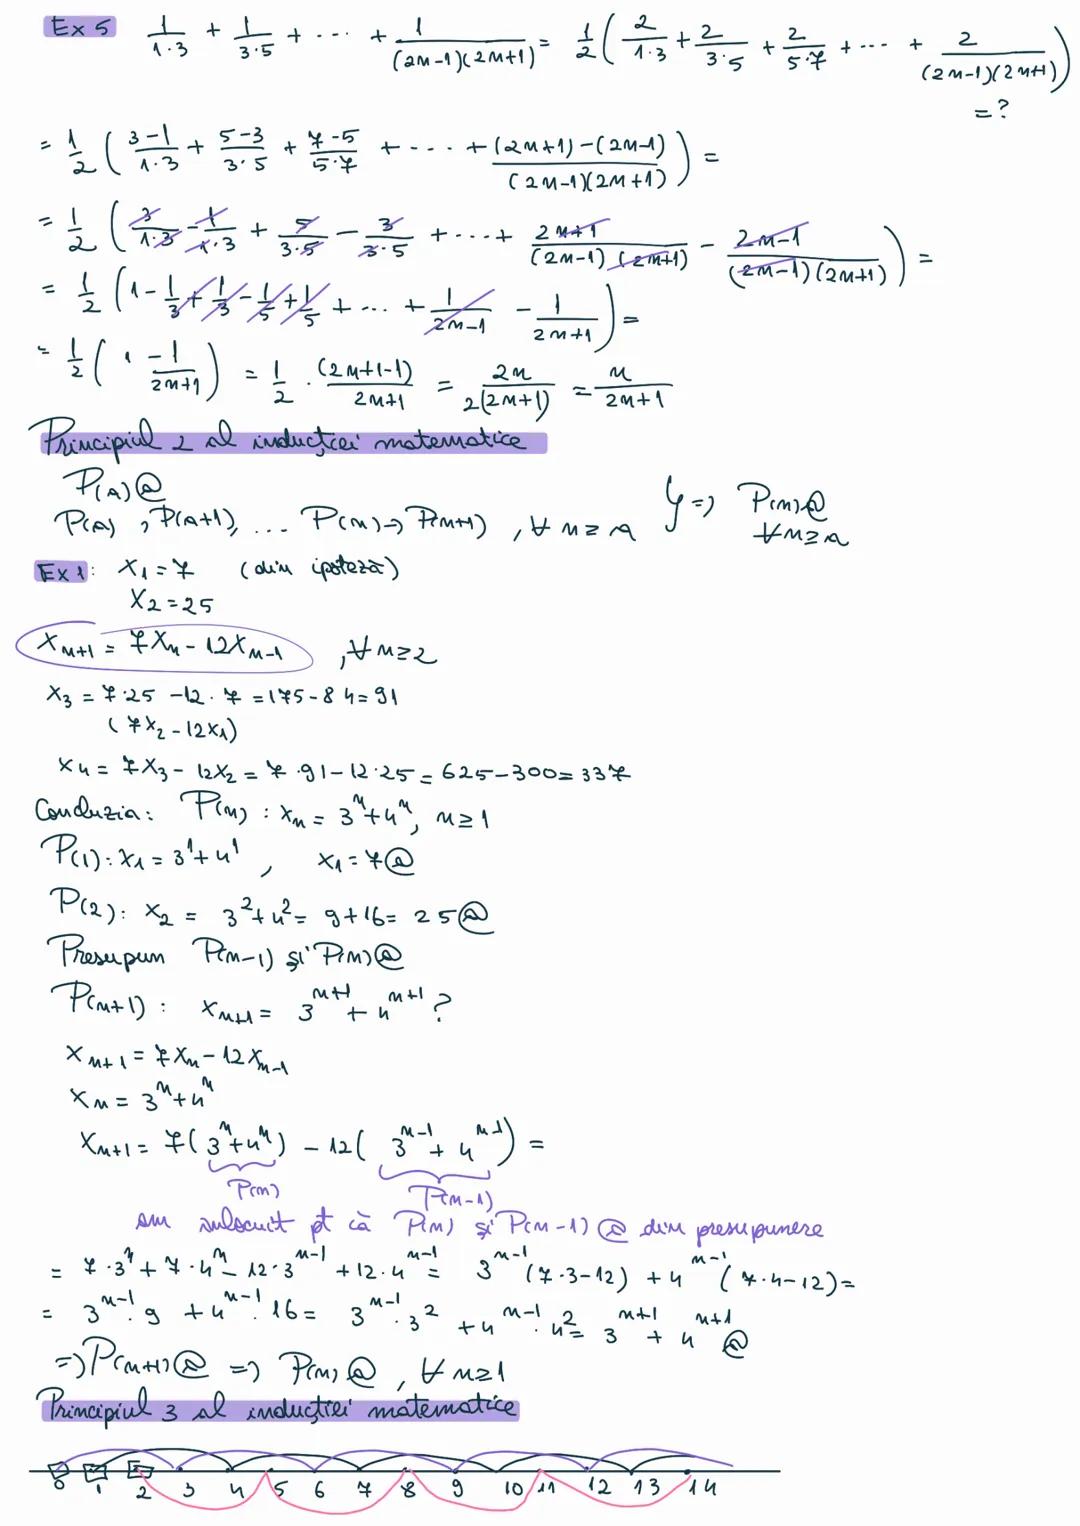 Ex 5 1/(1·3) + 1/(3·5) + ... + 1/((2n-1)(2n+1)) = 1/2 (2/(1·3) + 2/(3·5) + 2/(5·7) + ... + 2/((2n-1)(2n+1)))
= ?
= 1/2 ((3-1)/(1·3) + (5-3)/(3·5) + (7-5)/(5·7) + ... + ((2n+1)-(2n-1))/((2n-1)(2n+1))) =
= 1/2 (3/(1·3) - 1/(1·3) + 5/(3·5) - 3/(3·5) + ... + (2n+1)/((2n-1)(2n+1)) - (2n-1)/((2n-1)(2n+1))) =
= 1/2 (1 - 1/3 + 1/3 - 1/5 + 1/5 + ... + 1/(2n-1) - 1/(2n+1)) =
= 1/2 (1 - 1/(2n+1)) = 1/2 · (2n+1-1)/(2n+1) = 2n/(2(2n+1)) = n/(2n+1)
Principiul 2 al inducției matematice
P(a) Ⓐ
P(a), P(a+1), ... P(n) → P(n+1), ∀ n≥a } => P(n) Ⓐ
∀ n≥a
Ex 1: x₁ = 7 (din ipoteză)
x₂ = 25
xₙ₊₁ = 7xₙ - 12xₙ₋₁, ∀ n≥2
x₃ = 7·25 - 12·7 = 175 - 84 = 91
(7x₂ - 12x₁)
x₄ = 7x₃ - 12x₂ = 7·91 - 12·25 = 625 - 300 = 337
Concluzia: P(n): xₙ = 3ⁿ + 4ⁿ, n≥1
P(1): x₁ = 3¹ + 4¹, x₁ = 7 Ⓐ
P(2): x₂ = 3² + 4² = 9 + 16 = 25 Ⓐ
Presupun P(n-1) și P(n) Ⓐ
P(n+1): xₙ₊₁ = 3ⁿ⁺¹ + 4ⁿ⁺¹ ?
xₙ₊₁ = 7xₙ - 12xₙ₋₁
xₙ = 3ⁿ + 4ⁿ
xₙ₊₁ = 7(3ⁿ + 4ⁿ) - 12(3ⁿ⁻¹ + 4ⁿ⁻¹) =
P(n) P(n-1)
am înlocuit pt că P(n) și P(n-1) Ⓐ din presupunere
= 7·3ⁿ + 7·4ⁿ - 12·3ⁿ⁻¹ + 12·4ⁿ⁻¹ = 3ⁿ⁻¹(7·3-12) + 4ⁿ⁻¹(7·4-12) =
= 3ⁿ⁻¹·9 + 4ⁿ⁻¹·16 = 3ⁿ⁻¹·3² + 4ⁿ⁻¹·4² = 3ⁿ⁺¹ + 4ⁿ⁺¹ Ⓐ
=> P(n+1) Ⓐ => P(n) Ⓐ, ∀ n≥1
Principiul 3 al inducției matematice
0 1 2 3 4 5 6 7 8 9 10 11 12 13 14